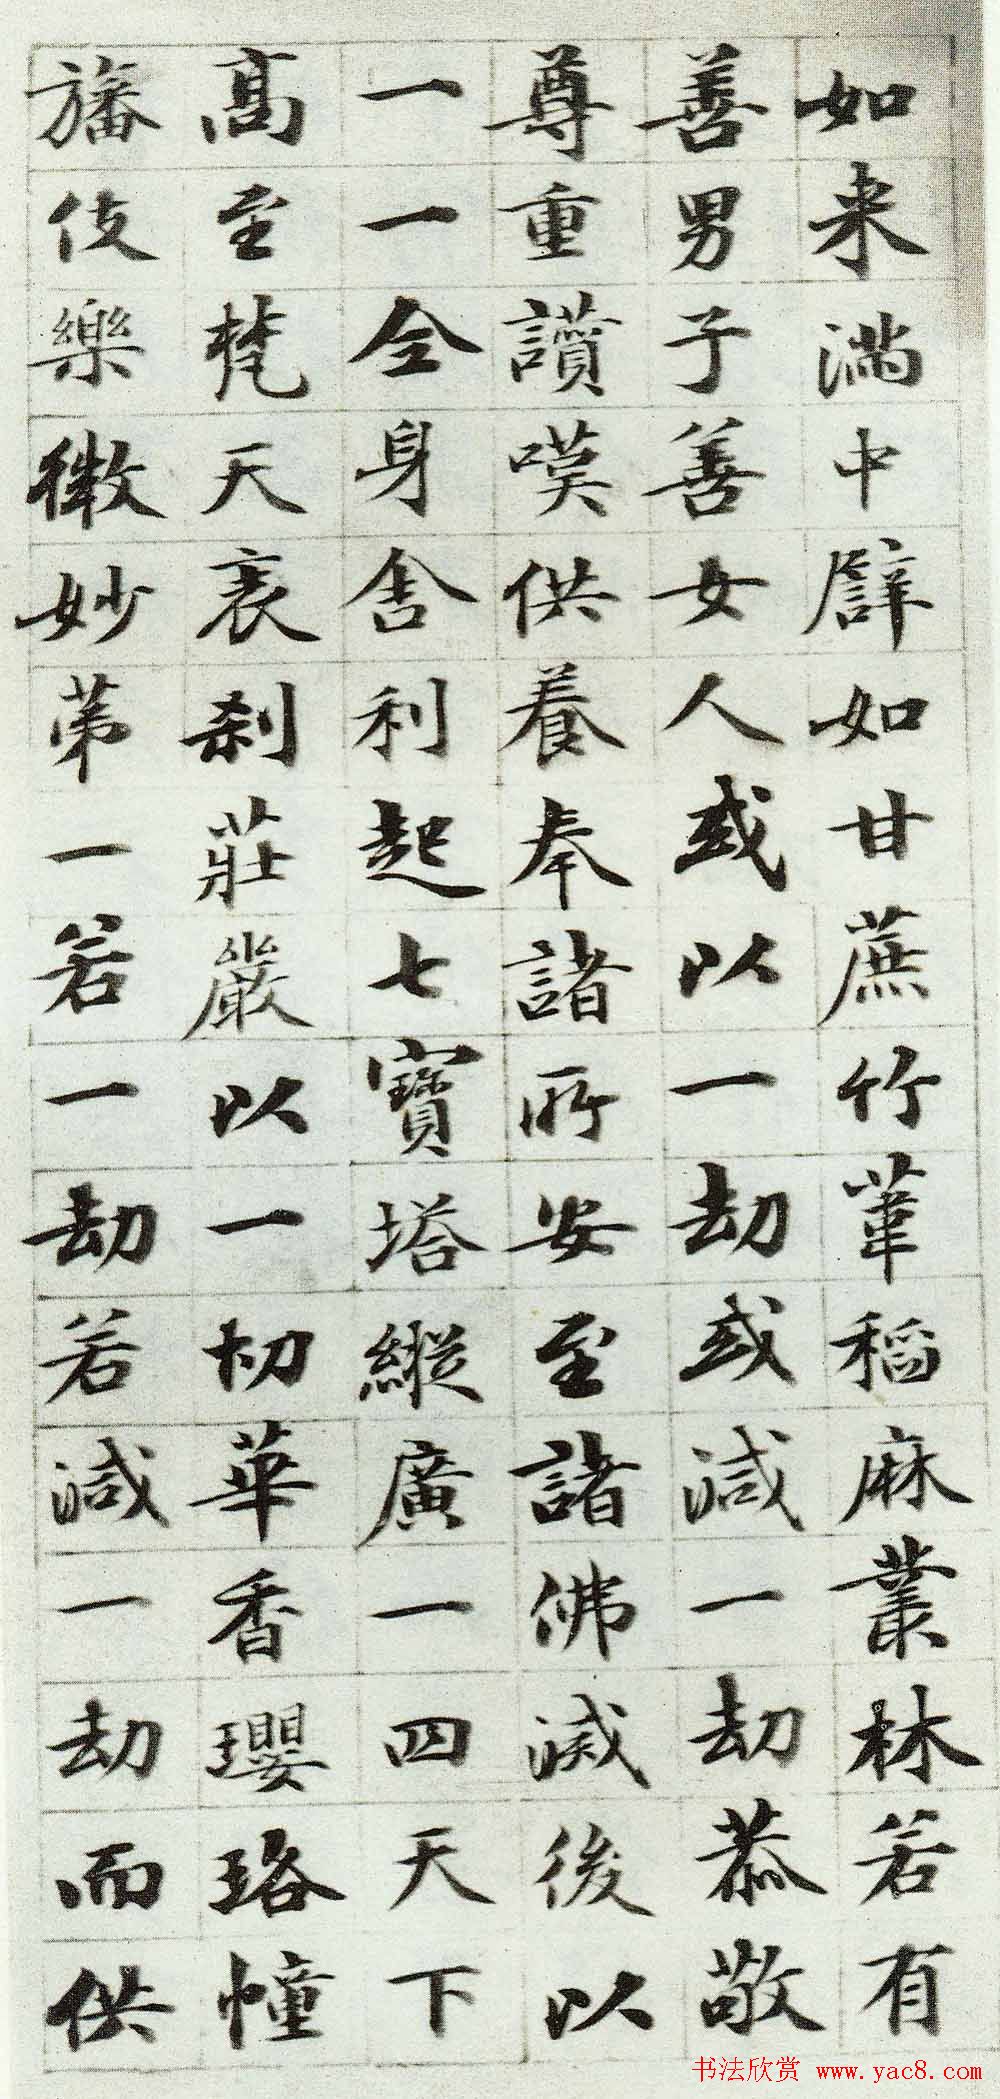 如来滿中辟如甘蔗竹葦稻麻叢林若有
善男子善女人或以一劫或減一劫恭敬
尊重讚嘆供養奉諸所安至諸佛滅後以
一一全身舍利起七寶塔縱廣一四天下
髙至梵天表刹莊嚴以一切華香瓔珞幢
旛伎樂微妙第一若一劫若減一劫而供
书法欣赏 www.yac8.com